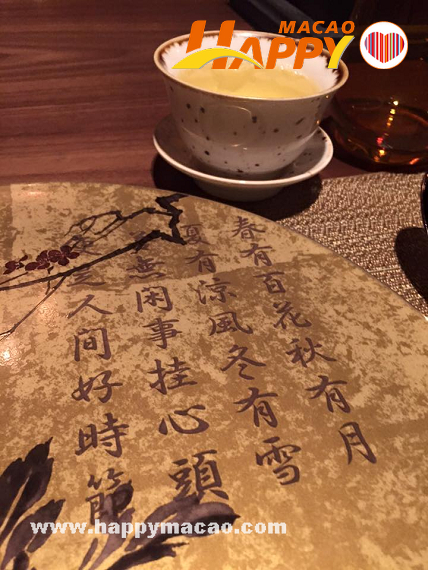 MACAO
HAPPY
春有百花秋有月
夏有涼風冬有雪
無閑事挂心頭
是人間好時節
www.happymacao.com